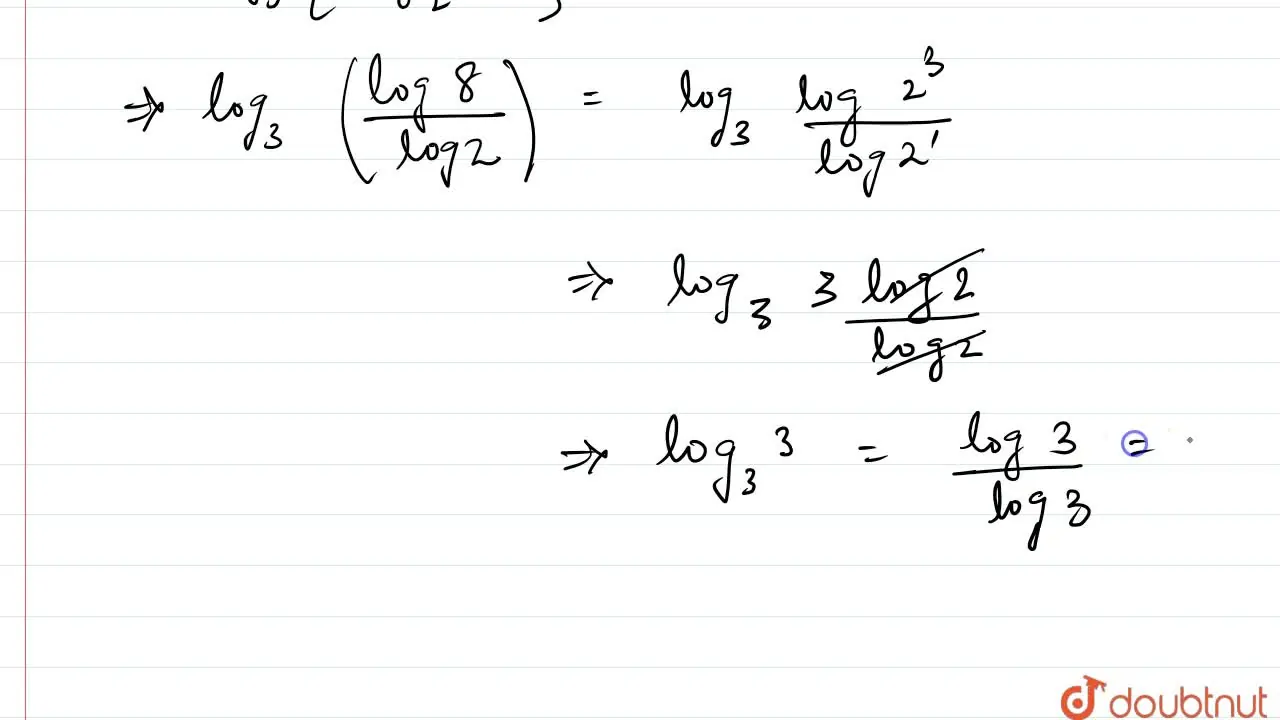 ⇒ log₃ (log 8 / log 2) = log₃ log 2³ / log 2¹
⇒ log₃ 3 log 2 / log 2
⇒ log₃ 3 = log 3 / log 3 =
doubtnut